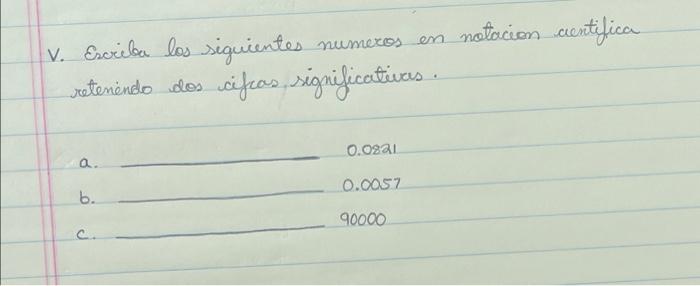 V. Escriba los siguientes numeros en notacion cientifica
retenindo dos cifras significativas.
a. ____________ 0.0821
b. ____________ 0.0057
c. ____________ 90000